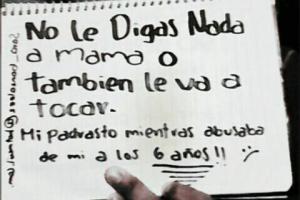 No le Digas Nada
a mama o
tambien le va a
tocar.
Mi padrasto mientras abusaba
de mi a los 6 años!! :(